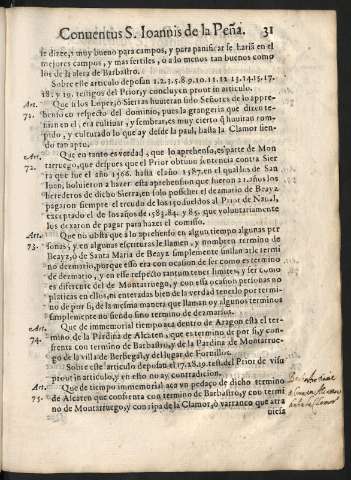 Conuentus S. Ioannis de la Peña. 31
se dizer, y muy bueno para campos, y para panificar se haris en el
mejores campos, y mas fertiles, o a lo menos tan buenos como
los de la alera de Barbastro.
Sobre este articulo deposan 1.2.3.5.8.9.10.11.12 13.14.15.17.
18. y 19. testigos del Prior, y concluyen prout in articulo.
Art. Que si los Lopez, ò Sierras huuieran sido Señores de lo apre-
71. henso en respecto del dominio, pues la grangeria que dicen te-
nian en el, era cultiuar, y sembrar, es muy cierto q̃ huuieran rom-
pido, y culturado lo que ay desde la paul, hasta la Clamor sien-
do tan apto.
Art. Que en tanto es verdad, que lo aprehenso, es parte de Mon-
72. tarruego, que despues que el Prior obtuuo sentencia contra Sier
ra que fue el año 1566. hasta el año 1587. en el qual los de San
Iuan, boluieron a hazer esta aprehension que fueron 21. años los
herederos de dicho Sierra, en solo posseher el dezmario de Beayz
pagaron siempre el treudo de los 150. sueldos al Prior de Naual,
exceptado el de los años de 1583. 84. y 85. que voluntariamente
los dexaron de pagar para hazer el comisso.
Art. Que no obsta que a lo aprehenso en algun tiempo algunas per
73. sonas, y en algunas escrituras le llamen, y nombren termino de
Beayz, ò de Santa Maria de Beayz simplemente sin llamarle termi
no dezmario, porque esso era con ocasion de ser como es termino
de dezmario, y en esse respecto tantum tener limites, y ser como
es diferente del de Montarruego, y con essa ocasion personas no
platicas en ello, ni enteradas bien de la verdad tenerlo por termi-
no de por si, de la mesma manera que llaman oy algunos termino
simplemente no siendo sino termino de dezmarios.
Art. Que de immemorial tiempo aca dentro de Aragon està el ter-
74. mino de la Pardina de Alcaten, que es termino de por si, y con-
frenta con termino de Barbastro, y de la Pardina de Montarrue-
go de la villa de Berbegal, y del lugar de Fornillos.
Sobre este articulo deposan el 17. 18. 19. test. del Prior de visu
prout in articulo, y en ello no ay contradicion.
Art. Que de tiempo immemorial aca vn pedaço de dicho termino
75. de Alcaten que confrenta con termino de Barbastro, y con termi-
no de Montarruego, y con ripa de la Clamor, ò varranco que atra
uiessa